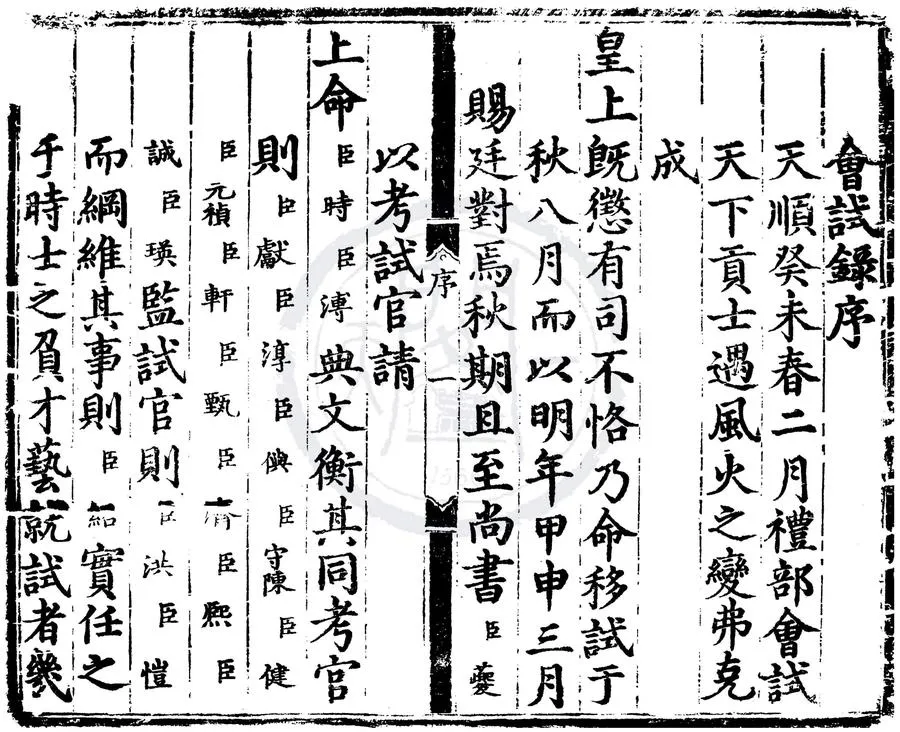 會試錄序
天順癸未春二月禮部會試
天下貢士遇風火之變弗克
成
皇上旣懲有司不恪乃命移試于
秋八月而以明年甲申三月
賜廷對焉秋期且至尚書臣夔
序 一
以考試官請
上命臣時臣溥典文衡其同考官
則臣獻臣淳臣俁臣守陳臣健
臣元禎臣軒臣甄臣濟臣熙臣
誠臣瑛監試官則臣洪臣愷
而綱維其事則臣紹實任之
于時士之負才藝就試者幾